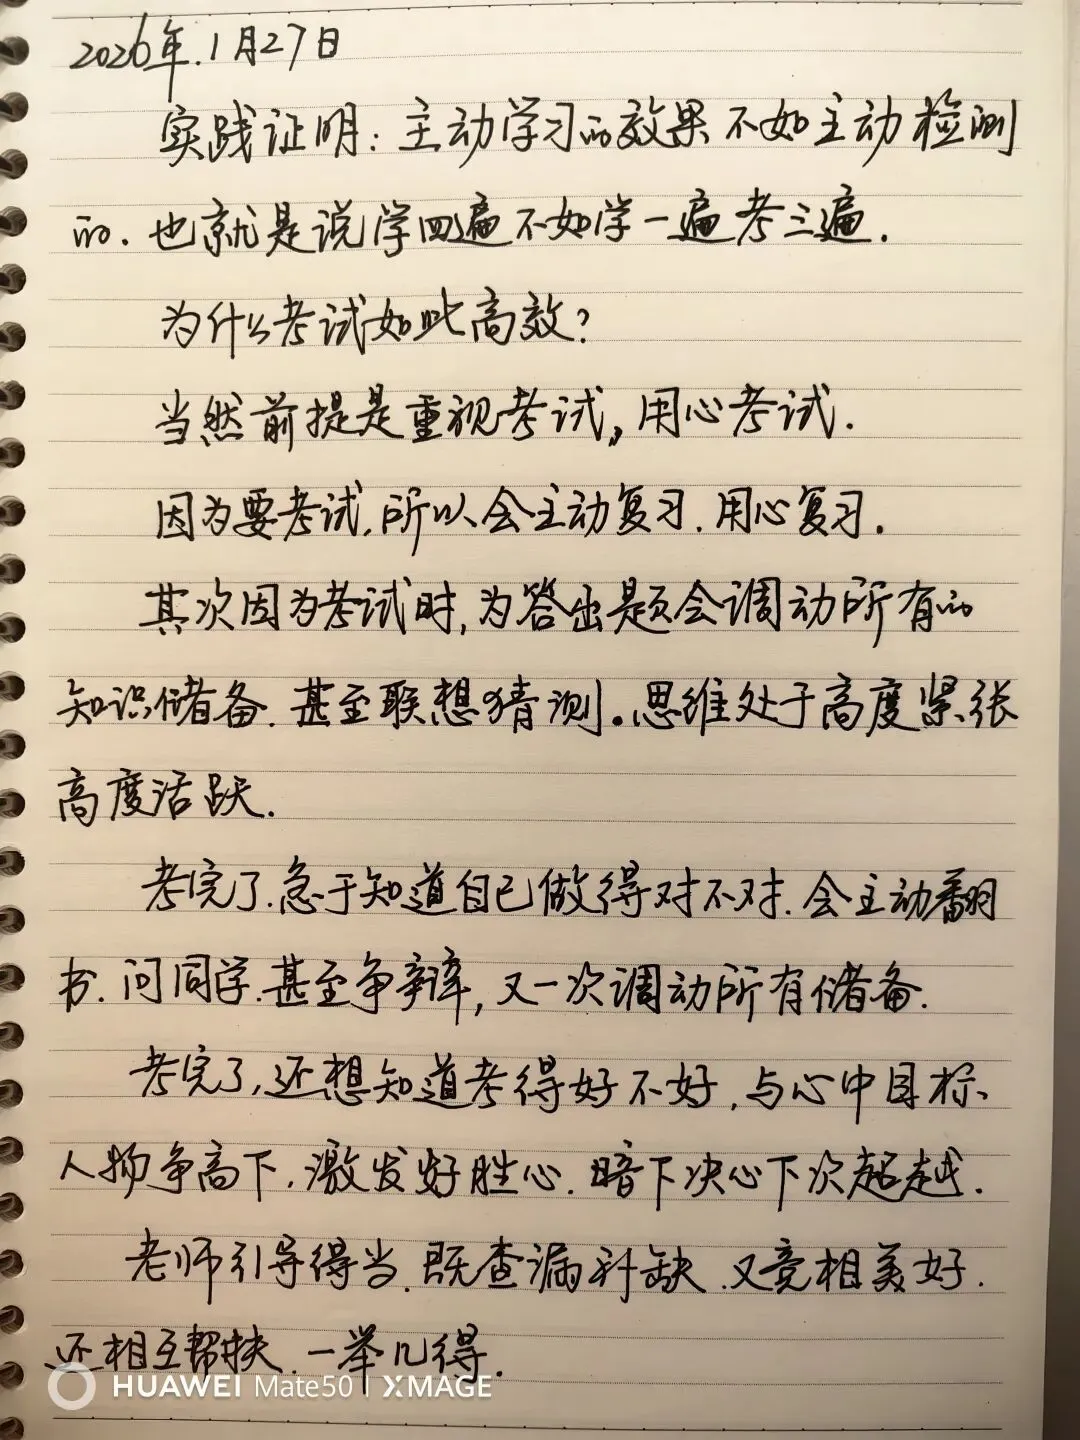 2026年.1月27日
实践证明:主动学习的效果不如主动检测
的.也就是说学四遍不如学一遍考三遍.
为什么考试如此高效?
当然前提是重视考试,用心考试.
因为要考试,所以会主动复习.用心复习.
其次因为考试时,为答出题会调动所有的
知识储备.甚至联想猜测.思维处于高度紧张
高度活跃.
考完了.急于知道自己做得对不对.会主动翻
书.问同学.甚至争辩,又一次调动所有储备.
考完了,还想知道考得好不好,与心中目标
人物争高下,激发好胜心.暗下决心下次超越.
老师引导得当.既查漏补缺.又竞相美好.
还相互帮扶.一举几得.
HUAWEI Mate50 | XMAGE